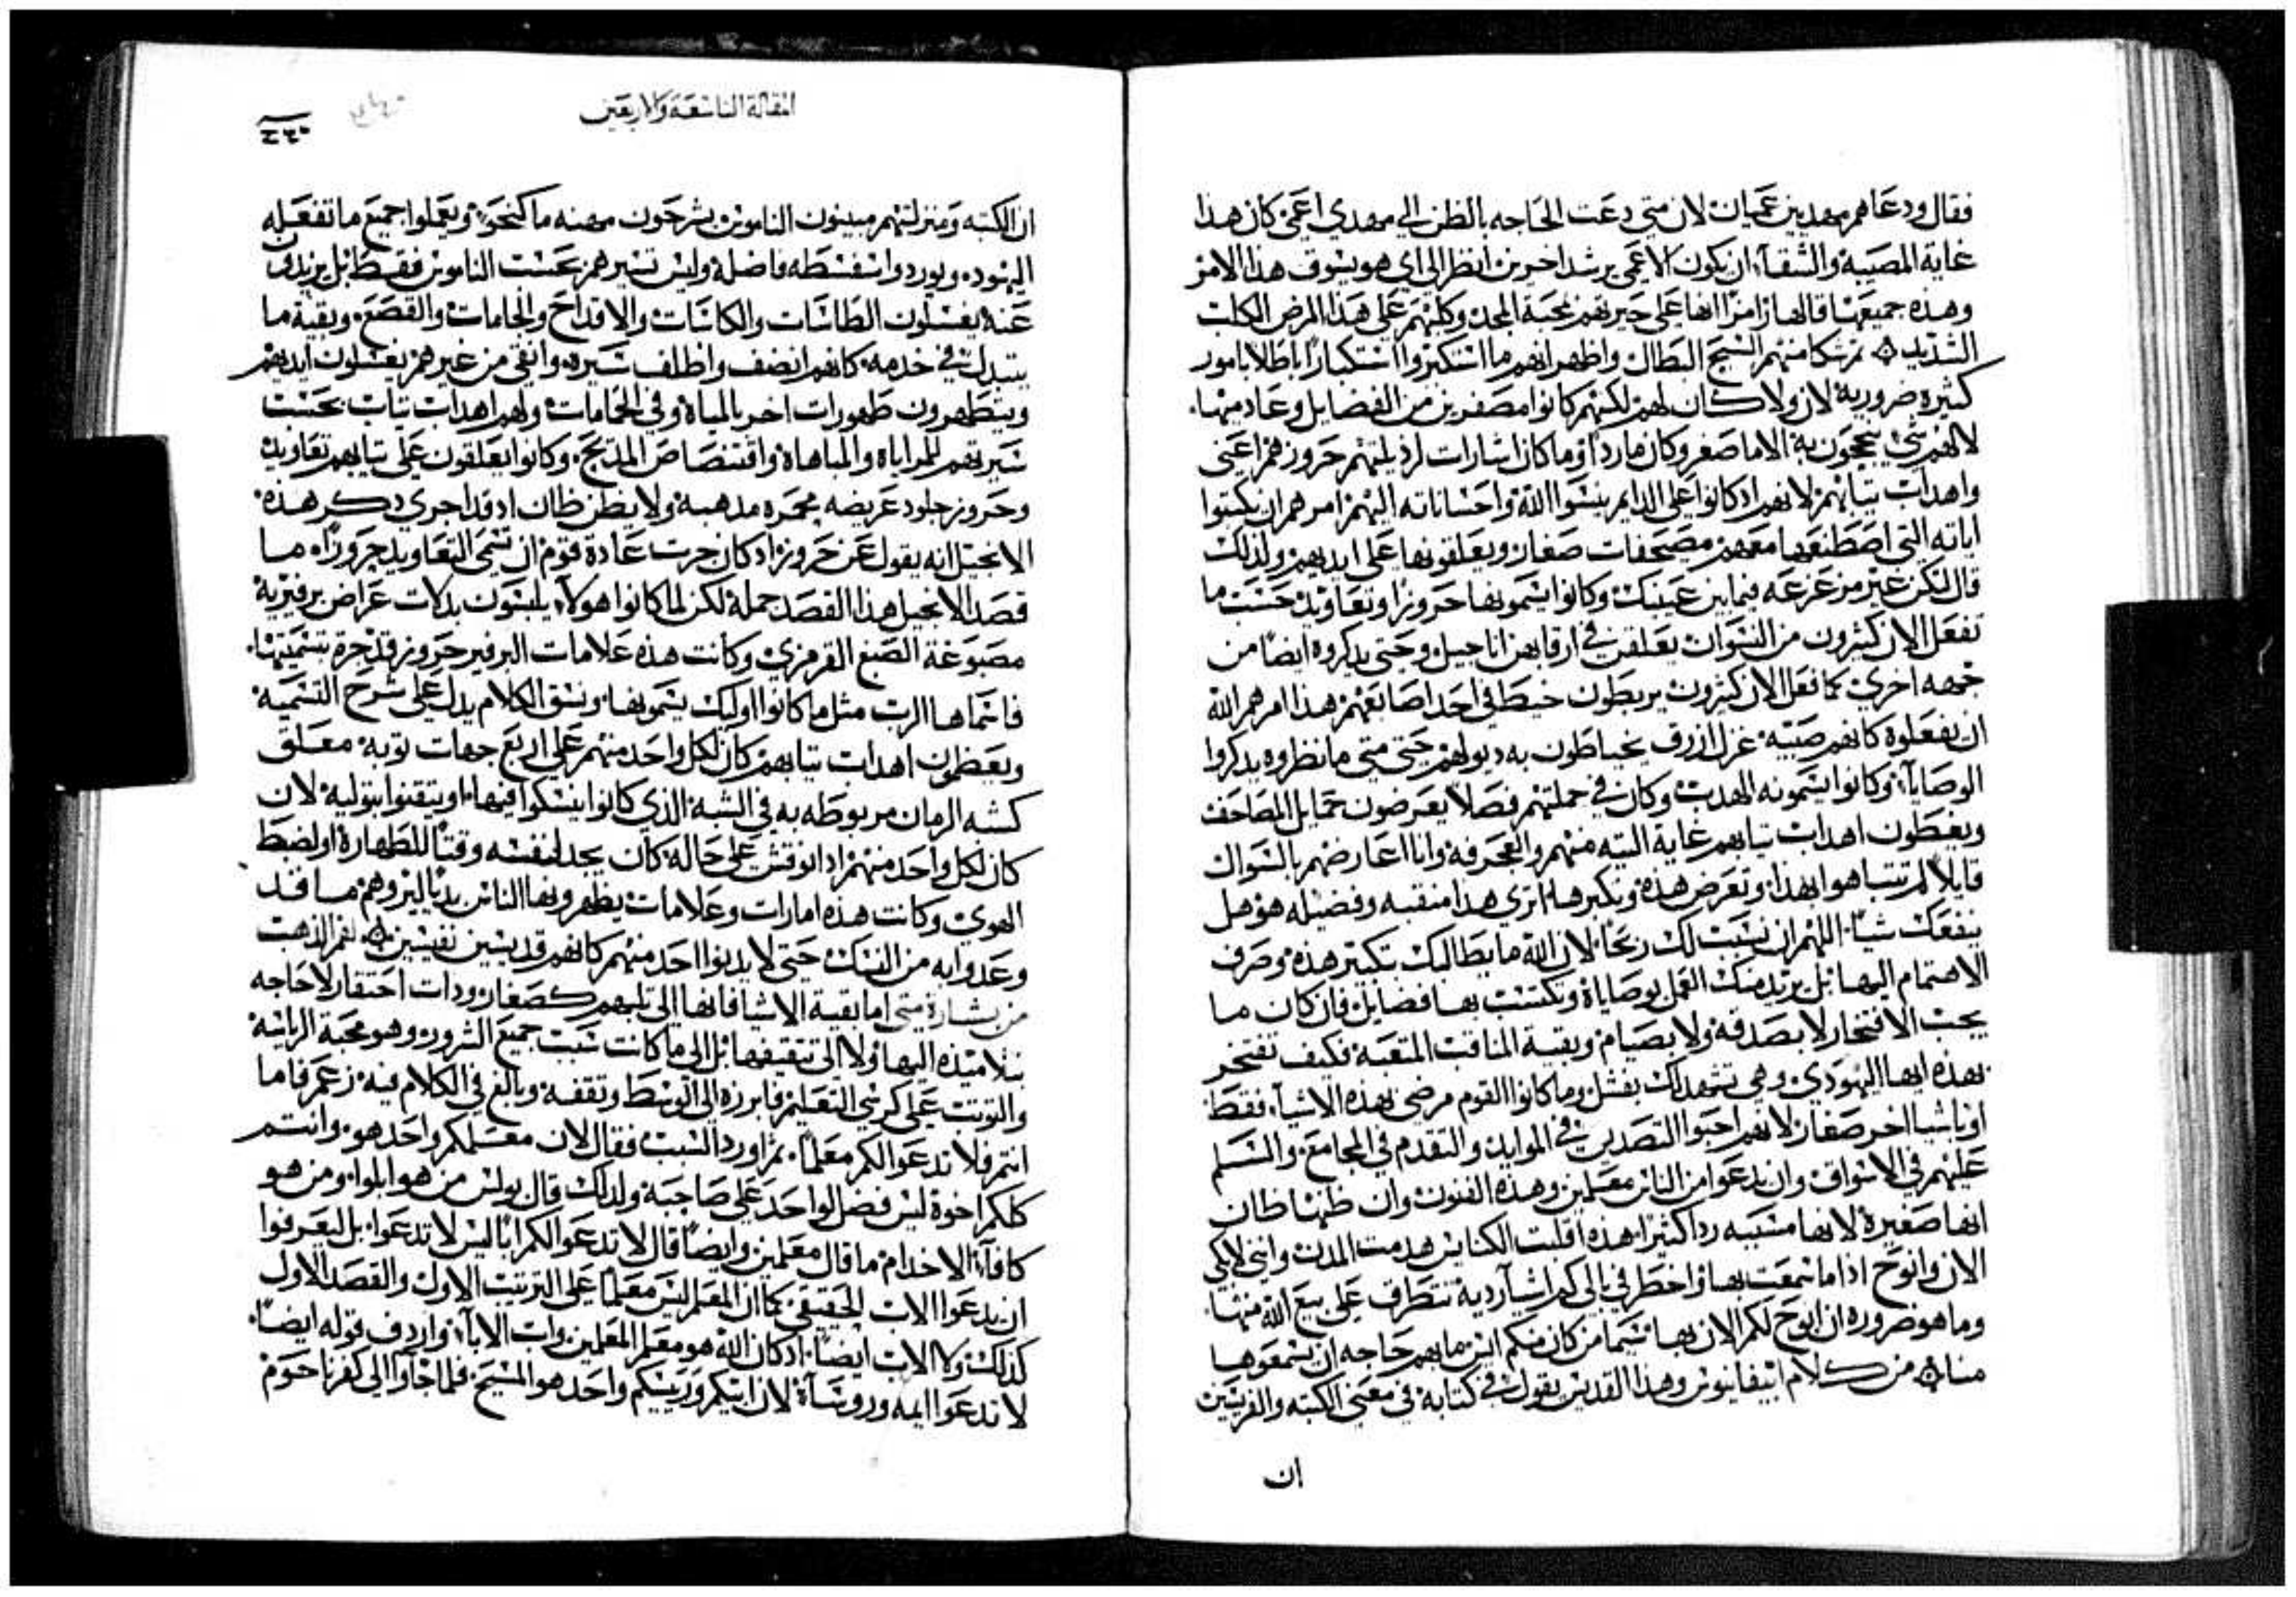 فقال ودعاهم مهديين عميان لان متى دعت الحاجه بالظن الى مهدي اعمى كان هذا
غاية المصيبة والشقآ ان يكون الاعمى يرشد اخرين انظر الى اي هو يسوق هذا الامر
وهذه جميعها قالها زامرًا انها على حيرتهم بمحبة المجد وكلبهم على هذا المرض الكلب
الشديد ثم شكا منهم السبح البطال واظهر انهم ما استكبروا استكبارًا باطلا بامور
كثيرة ضرورية لان ولا كان لهم لكنهم كانوا مصفرين من الفضايل وعادمينها
لا لهم شي يعجبون به الا ما صغر وكان ماردا وما كان اشارات لرذيلتهم حروزهم اعنى
واهداب تيابهم لانهم اد كانوا على الدايم ينسوا الله واحساناته اليهم امرهم ان يكتبوا
اياته التي اصطنعها معهم مصحفات صغار ويعلقونها على ايديهم ولذلك
قال لتكن غير مزعزعه فيما بين عينيك وكانوا يسمونها حروزا وتعاويذ حسب ما
تفعل الان كثيرون من النسوان يعلقن في ارقابهن اناجيل وحتى يدكروه ايضًا من
جهه اخرى كما تفعل الان كثيرون يربطون خيط في احد اصابعهم هذا امرهم الله
ان يفعلوه كانهم صبيه غزل ازرق يخياطون به ديولهم حتى متى ما نظروه يدكروا
الوصايآ وكانوا يسمونه الهدب وكان في حملتهم فصلا يعرضون حمايل المصاحف
ويغبطون اهداب تيابهم غاية التيه منهم والعجرفة وانا اعارضهم بالسوال
قايلاً لم تتباهوا بهذا وتعرض هذه وتكبرها اترى هدا منقبه وفضيله هو هل
ينفعك شيًا اللهم ان نسبت لك ربحًا لان الله ما يطالبك بتكبير هذه وصرف
الاهتمام اليها بل يريد منك العمل بوصاياه وتكتسب بها فضايل فان كان ما
يجب الافتخار لا بصدقه ولا بصيام وبقية المناقب المتعبة فكيف تفتخر
بهذه ايها اليهودي وهي تشهد لك بفشل وما كانوا القوم مرضى بهذه الاشيآ فقط
او باشيا اخر صغار لانهم احبوا التصدير في الموايد والتقدم في المجامع والتسلم
عليهم في الاسواق وان يدعوا من الناس معلمين وهذه الفنون وان ظنها ظان
انها صغيرة لانها مسببه ردا كثيرا هذه اقلبت الكنايس هدمت المدن وانني لابكي
الان وانوح اذا ما سمعت بها واخطر في بالى كم اشيآ ردية تتطرق على بيع الله منها
وما هو ضروره ان ابوح لكم الان بها سيما من كان منكم ليس ما بهم حاجه ان يسمعوها
منا من كلام ابيفانيوس وهذا القديس يقول في كتابة في معنى الكتبه والفريسيين
ان
المقالة التاسعة والاربعين
ان الكتبه ومنزلتهم مبينون الناموس يشرحون مهنه ما كنحوٍ ويعملوا جميع ما تفعله
اليهود ويوردوا سفسطه فاضلة وليس تسيرهم بحسب الناموس فقط بل يزيدون
عنه يغسلون الطاسات والكاسات والاقداح والجامات والقصع وبقية ما
يتبدل في خدمه كانهم انصف واظلف سيره وانقى من غيرهم يغسلون ايديهم
ويتطهرون طهورات اخر بالمياه وفي الحمامات ولهم اهداب تياب بحسب
سيرتهم للمراياة والمباهاة واقتنصاص المديح وكانوا يعلقون على تيابهم تعاويذ
وحروز جلود عريضه بمجمره مدهبه ولا يظن ظان اد قد اجرى دكر هذه
الانجيل انه يقول عن حروز اد كان جرت عادة قوم ان تسمى التعاويذ حروزًا ما
قصد الانجيل هذا القصد جملة لكن لما كانوا هولآ يلبسون بدلات عراض برفيرية
مصبوغة الصبغ القرمزي وكانت هذه علامات البرفير حروز قد جرة تسميتها
فاسماها الرب مثل ما كانوا اوليك يسمونها ونسق الكلام يدل على شرح التسمية
ويعظمون اهداب تيابهم كان لكل واحد منهم على اربع جهات توبه معلق
كشبه الرمان مربوطه به في الشبه الذي كانوا ينسكوا فيها او يتيقنوا بتوليه لان
كان لكل واحد منهم اد انوقتش على حاله كان يجد لنفسه وقتًا للطهارة او لضبط
الهوى وكانت هذه امارات وعلامات يظهرونها الناس بديًا ليروهم ما قد
وعدوا به من النسك حتى لا يدنوا احد منهم كانهم قديسين نفيسين لفم الذهب
من بشارة متى اما بقية الاشيا فانها الى تلبهم كصغار ودات احتقار لا حاجه
بتلاميذه اليها ولا الى تثقيفها بل الى ما كانت سبب جميع الشرور وهو محبة الرياسة
والتوتب على كرسي التعليم فابرزه الى الوسط وتقفه وبالغ في الكلام فيه زعم فاما
انتم فلا تدعوا لكم معلمًا ثم اورد السبب فقال لان معلمكم واحد هو وانتم
كلكم اخوة ليس فضل لواحد على صاحبة ولدلك قال بولس من هو ابلوا ومن هو
كافآ الا خدام ما قال معلمين وايضًا قال لا تدعوا لكم ابًا ليس لا تدعوا بل ليعرفوا
ان يدعوا الاب الحقيقي كما ان المعلم ليس معلمًا على الترتيب الاول والقصد الاول
كذلك ولا الاب ايضًا اد كان الله هو معلم المعلمين واب الابآ واردف قوله ايضًا
لا تدعوا ايمه وروسآة لان ابيكم وريسكم واحد هو المسيح فلما جآوا الى كفرناحوم